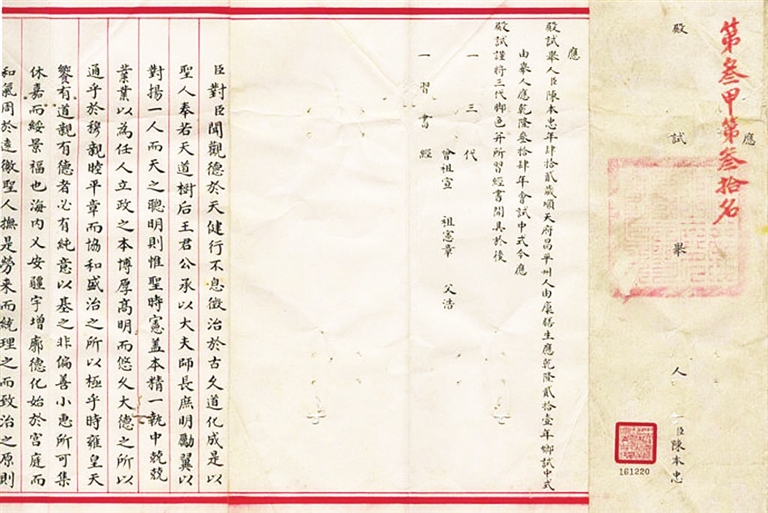 第叁甲第叁拾名
應
殿試舉人臣陳本忠
161220
應
殿試舉人臣陳本忠年肆拾貳歲順天府昌平州人由廩膳生應乾隆貳拾壹年鄉試中式
由舉人應乾隆叁拾肆年會試中式今應
殿試謹將三代脚色并所習經書開具於後
一三代
曾祖宣 祖憲章 父浩
一習書經
臣對臣聞觀德於天健行不息徵治於古久道化成是以
聖人奉若天道樹后王君公承以大夫師長庶明勵翼以
對揚一人而天之聰明則惟聖時憲蓋本精一執中兢兢
業業以為任人立政之本博厚高明而悠久大德之所以
通乎於穆親睦平章而協和盛治之所以極乎時雍皇天
饗有道親有德者必有純意以基之非偏善小惠所可集
休嘉而綏景福也海内乂安疆宇增廓德化始於宮庭而
和氣周於遠徼聖人撫是勞來而統理之而致治之原則